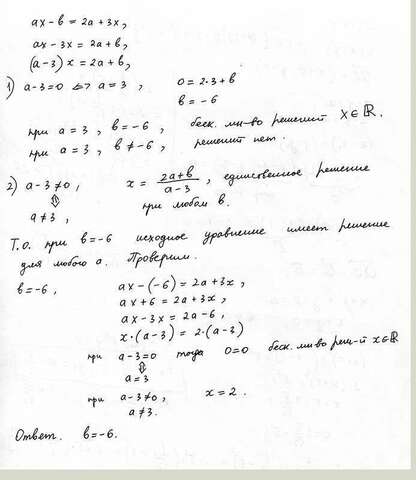 ax-в = 2a+3x,
ax-3x = 2a+в,
(a-3)x = 2a+в,
1) a-3=0 <=> a=3, 0=2·3+в
в=-6
при a=3, в=-6, беск. мн-во решений x∈ℝ.
при a=3, в≠-6, решений нет.
2) a-3≠0, x = (2a+в)/(a-3), единственное решение
⇕ при любом в.
a≠3,
Т.о. при в=-6 исходное уравнение имеет решение
для любого a. Проверим.
в=-6, ax-(-6) = 2a+3x,
ax+6 = 2a+3x,
ax-3x = 2a-6,
x·(a-3) = 2·(a-3)
при a-3=0 тогда 0=0 беск. мн-во реш-й x∈ℝ
⇕
a=3
при a-3≠0, x=2.
a≠3.
Ответ. в=-6.